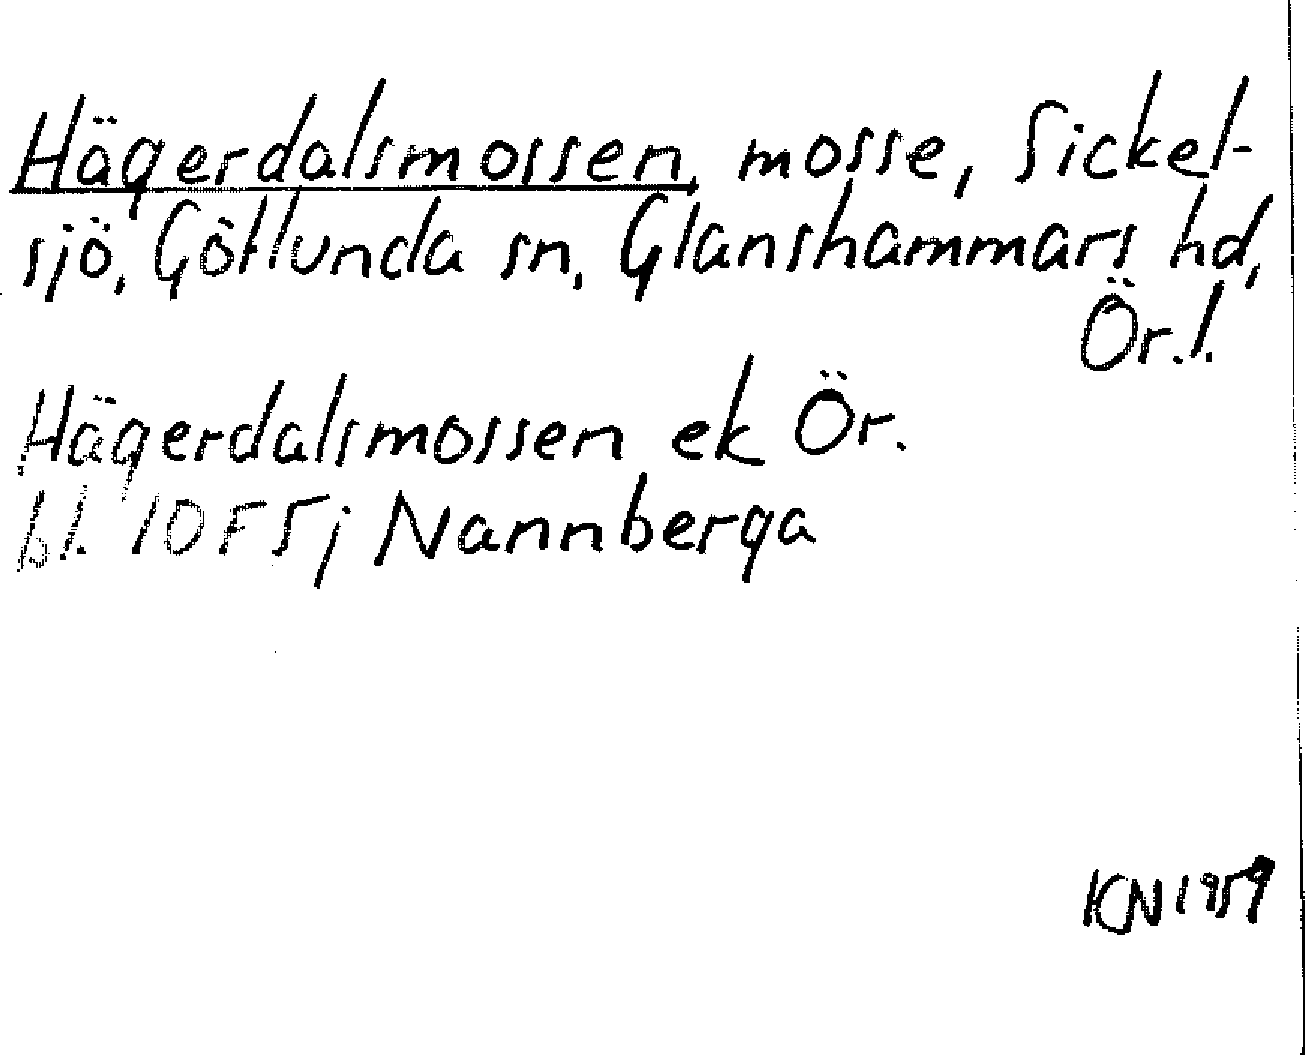 Hägerdalsmossen, mosse, Sickel-
sjö, Götlunda sn, Glanshammars hd,
Ör.l.
Hägerdalsmossen ek Ör.
bl. 10F5j Nannberga
KN 1959